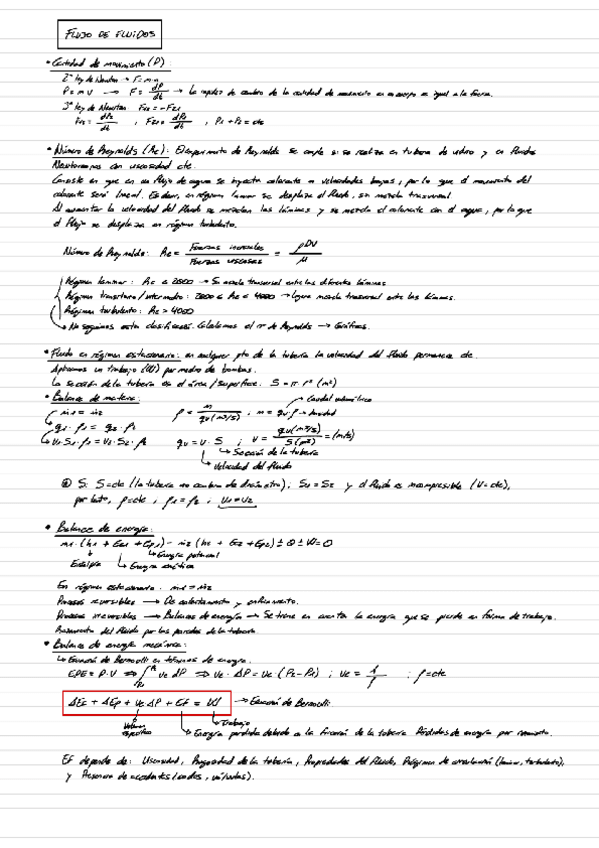 FLUJO DE FLUIDOS
• Cantidad de movimiento (P):
2ª ley de Newton → F = m·a
P = m·v → F = dP/dt → La rapidez de cambio de la cantidad de movimiento en un cuerpo es igual a la fuerza.
3ª ley de Newton: F12 = -F21
F12 = dP2/dt ; F21 = dP1/dt ; P1 + P2 = cte
• Número de Reynolds (Re): El experimento de Reynolds se cumple si se realiza en tuberías de vidrio y en fluidos
Newtonianos con viscosidad cte.
Consiste en que en un flujo de agua se inyecta colorante a velocidades bajas, por lo que el movimiento del
colorante será lineal. Es decir, en régimen laminar se desplaza el fluido, sin mezcla transversal.
Al aumentar la velocidad del fluido se mezclan las láminas y se mezcla el colorante con el agua, por lo que
el flujo se desplaza en régimen turbulento.
Número de Reynolds: Re = Fuerzas inerciales / Fuerzas viscosas = ρDV / μ
Régimen laminar: Re < 2000 → Sin mezcla transversal entre las diferentes láminas
Régimen transitorio/intermedio: 2000 ≤ Re ≤ 4000 → ligera mezcla transversal entre las láminas.
Régimen turbulento: Re > 4000
→ No seguimos esta clasificación. Calculamos el nº de Reynolds → Gráficas.
• Fluido en régimen estacionario: en cualquier pto de la tubería la velocidad del fluido permanece cte.
Aplicamos un trabajo (W) por medio de bombas.
La sección de la tubería es el área/superficie: S = π·r² (m²)
• Balance de materia:
ṁ1 = ṁ2
ρ = m / qv(m³/s) ; m = qv·ρ → densidad
Caudal volumétrico
q1·ρ1 = q2·ρ2
v1·S1·ρ1 = v2·S2·ρ2
qv = v·S ; v = qv(m³/s) / S(m²) = (m/s)
Sección de la tubería
Velocidad del fluido
Si S = cte (la tubería no cambia de diámetro); S1 = S2 y el fluido es incompresible (V = cte),
por tanto, ρ = cte ; ρ1 = ρ2 ; v1 = v2
• Balance de energía:
ṁ1·(h1 + Ec1 + Ep1) - ṁ2 (h2 + Ec2 + Ep2) ± Q ± W = 0
Energía potencial
Entalpía
Energía cinética
En régimen estacionario: ṁ1 = ṁ2
Procesos reversibles → De calentamiento y enfriamiento.
Procesos irreversibles → Balance de energía → Se tiene en cuenta la energía que se pierde en forma de trabajo.
Rozamiento del fluido por las paredes de la tubería.
• Balance de energía mecánica:
→ Ecuación de Bernoulli en términos de energía.
EPE = P·V ⟹ ∫ ve dP ⟹ ve·ΔP = ve (P2-P1) ; ve = 1/ρ ; ρ = cte
ΔEc + ΔEp + ve ΔP + Ef = W → Ecuación de Bernoulli
Volumen
específico
Trabajo
Energía perdida debido a la fricción de la tubería. Pérdidas de energía por rozamiento.
Ef depende de: Viscosidad, Rugosidad de la tubería, Propiedades del fluido, Régimen de circulación (laminar, turbulento),
y Presencia de accidentes (codos, válvulas).